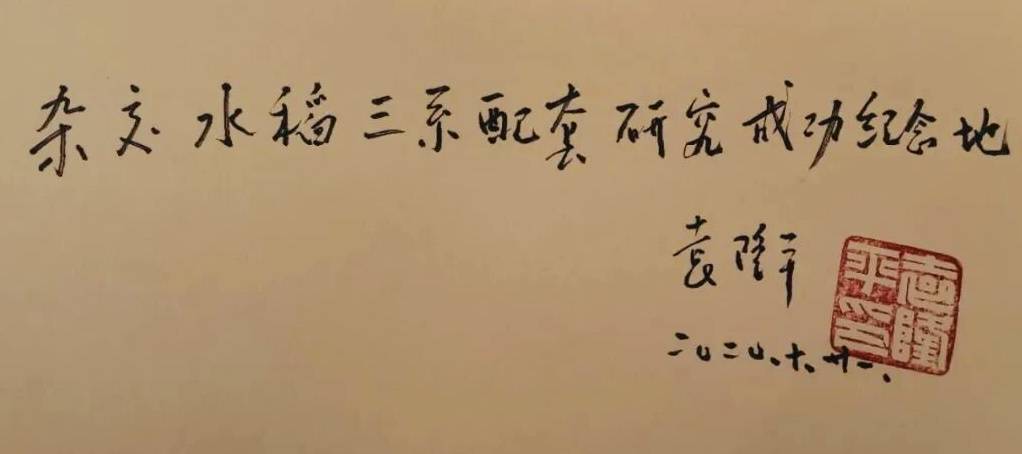 杂交水稻三系配套研究成功纪念地
袁隆平
二〇二〇、十、廿一、
袁隆平印